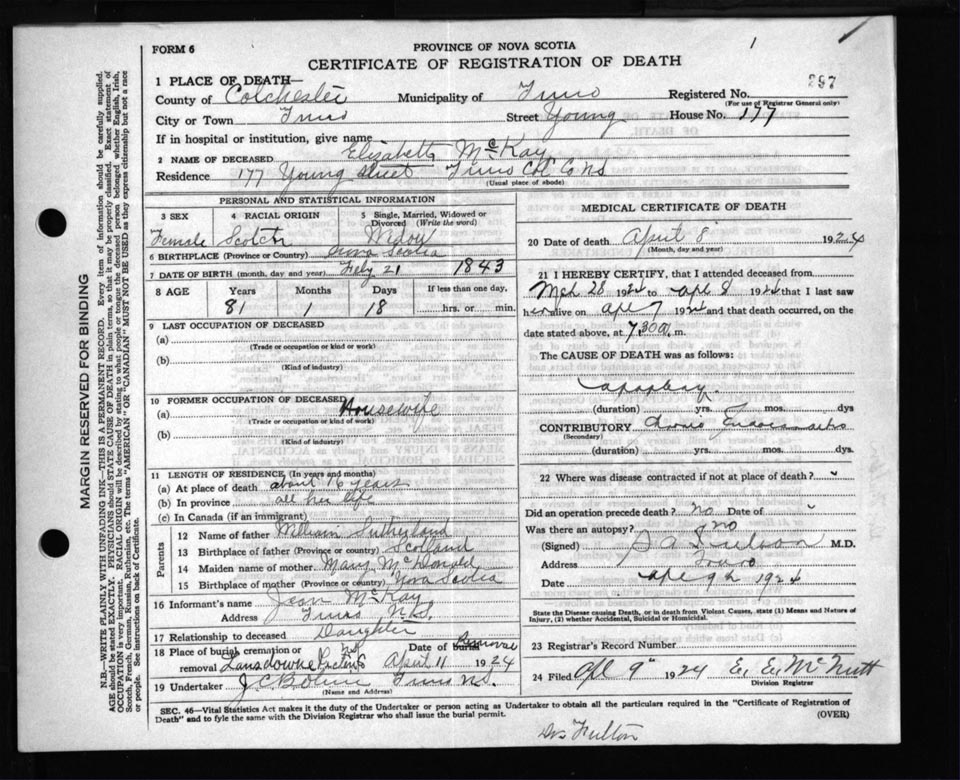 FORM 6
PROVINCE OF NOVA SCOTIA
1
CERTIFICATE OF REGISTRATION OF DEATH
1 PLACE OF DEATH—
297
County of Colchester Municipality of Truro Registered No.
(For use of Registrar General only)
City or Town Truro Street Young House No. 177
If in hospital or institution, give name
2 NAME OF DECEASED Elizabeth McKay
Residence 177 Young Street Truro Col Co NS
(Usual place of abode)
PERSONAL AND STATISTICAL INFORMATION
3 SEX 4 RACIAL ORIGIN 5 Single, Married, Widowed or Divorced (Write the word)
Female Scotch Widow
6 BIRTHPLACE (Province or Country) Nova Scotia
7 DATE OF BIRTH (month, day and year) Feby 21 1843
8 AGE Years Months Days If less than one day,
81 1 18 hrs. or min.
9 LAST OCCUPATION OF DECEASED
(a)
(Trade or occupation or kind or work)
(b)
(Kind of industry)
10 FORMER OCCUPATION OF DECEASED
(a) Housewife
(Trade or occupation or kind or work)
(b)
(Kind of industry)
11 LENGTH OF RESIDENCE (In years and months)
(a) At place of death about 16 years
(b) In province all her life
(c) In Canada (if an immigrant)
Parents
12 Name of father William Sutherland
13 Birthplace of father (Province or country) Scotland
14 Maiden name of mother Mary McDonald
15 Birthplace of mother (Province or country) Nova Scotia
16 Informant's name Jean McKay
Address Truro N.S.
17 Relationship to deceased Daughter
18 Place of burial, cremation or removal Lansdowne Pictou NS Date of burial Removal April 11 1924
19 Undertaker J.C. Truro N.S.
(Name and Address)
MEDICAL CERTIFICATE OF DEATH
20 Date of death April 8 1924
(Month, day and year)
21 I HEREBY CERTIFY, that I attended deceased from
Mch 28 1924 to Apl 8 1924 that I last saw
her alive on Apl 7 1924 and that death occurred, on the
date stated above, at 7.30 a m.
The CAUSE OF DEATH was as follows:
Apoplexy
(duration) yrs. mos. dys
CONTRIBUTORY Chronic
(Secondary)
(duration) yrs. mos. dys.
22 Where was disease contracted if not at place of death?
Did an operation precede death? No Date of
Was there an autopsy? No
(Signed) M.D.
Address Truro
Date Apl 9th 1924
State the Disease causing Death, or in death from Violent Causes, state (1) Means and Nature of Injury, (2) whether Accidental, Suicidal or Homicidal.
23 Registrar's Record Number
24 Filed Apl 9th 1924 E. E. McNutt
Division Registrar
SEC. 46—Vital Statistics Act makes it the duty of the Undertaker or person acting as Undertaker to obtain all the particulars required in the "Certificate of Registration of
Death" and to fyle the same with the Division Registrar who shall issue the burial permit. (OVER)
Drs Fulton
MARGIN RESERVED FOR BINDING
N.B.—WRITE PLAINLY WITH UNFADING INK—THIS IS A PERMANENT RECORD. Every item of information should be carefully supplied.
AGE should be stated EXACTLY. PHYSICIANS should STATE CAUSE OF DEATH in plain terms, so that it may be properly classified. Exact statement of
OCCUPATION is very important. RACIAL ORIGIN will be described by stating to what people or tongue the deceased person belonged whether English, Irish,
Scotch, French, German, Russian, Ruthenian, etc. The terms "AMERICAN" OR "CANADIAN" MUST NOT BE USED as they express citizenship but not a race
or people. See instructions on back of Certificate.